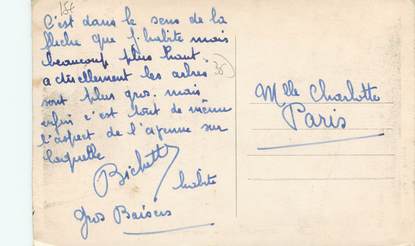 15F
C'est dans le sens de la
flèche que j'habite mais
beaucoup plus haut.
actuellement les arbres
sont plus gros. mais
enfin c'est tout de même
l'aspect de l'avenue sur
laquelle
Bichette
habite
gros Baisers
35
Mlle Charlotte
Paris